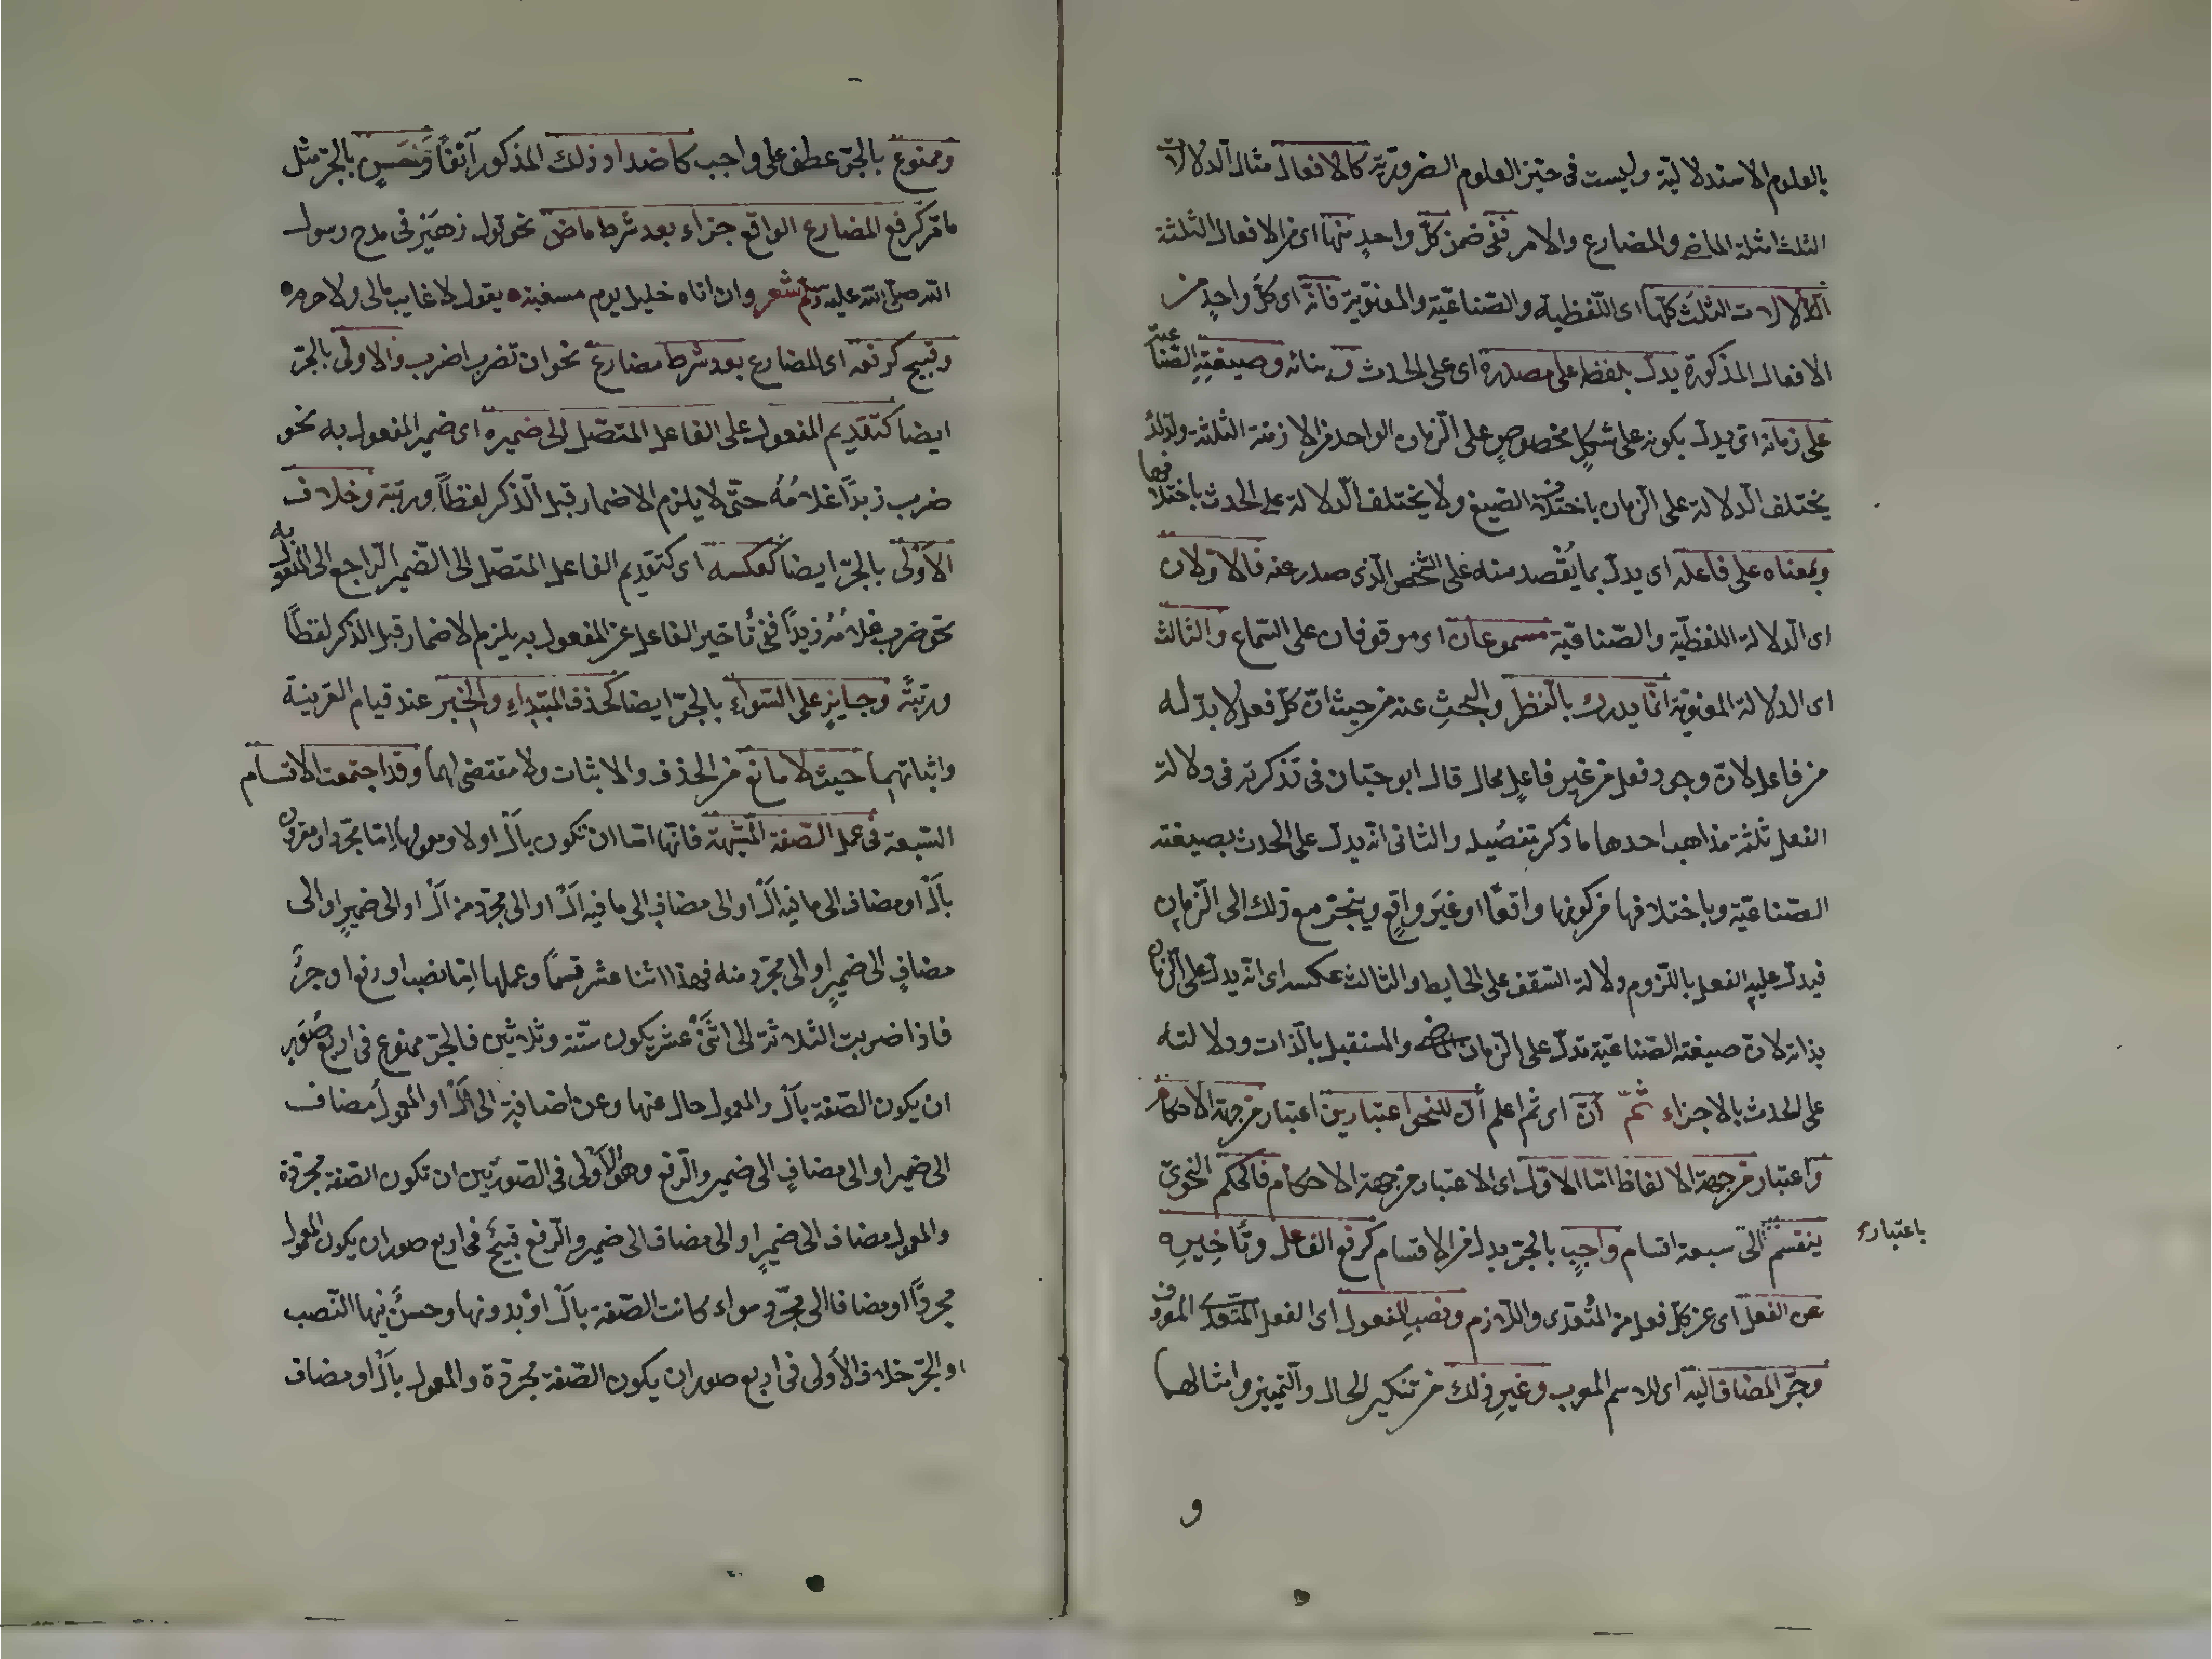 بالعلوم الاستدلالية وليست فى حيّز العلوم الضرورية كالافعال مثال الدلالات
الثلث امثلة الماضى والمضارع والامر ففى ضمن كلّ واحدٍ منها اى من الافعال الثلثة
الدلالات الثلث كلّها اى اللّفظية والصّناعيّة والمعنويّة فانّه اى كلّ واحدٍ من
الافعال المذكورة يدلّ بلفظه على مصدره اى على الحدث وبنائه وصيغتِهِ الصّناعيّة
على زمانه اى يدلّ بكونه على شكلٍ مخصوصٍ على الزّمان الواحد من الازمنة الثلثة ولذلك
يختلف الدّلالة على الزّمان باختلاف الصّيغ ولا يختلف الدّلالة على الحدث باختلافها
وبمعناه على فاعله اى يدلّ بما يُقْصد منه على الشّخص الّذى صدر عنه فالاوّلان
اى الدّلالة اللفظيّة والصّناعيّة مسموعان اى موقوفان على السّماع والثالث
اى الدلالة المعنويّة انّما يدرك بالنّظر والبحثِ عنه من حيث انّ كلّ فعل لا بدّ له
من فاعل لانّ وجود فعل من غير فاعلٍ محال قال ابو حيّان فى تذكرته فى دلالة
الفعل ثلثة مذاهب احدها ما ذُكر تفصيله والثانى انّه يدلّ على الحدث بصيغته
الصّناعيّة وباختلافها من كونها واقعًا او غيرَ واقعٍ وينجرّ مع ذلك الى الزّمان
فيدلّ عليه الفعل باللّزوم دلالة السّقف على الحايط والثالث عكسه اى انّه يدلّ على الزّمان
بذاته لانّ صيغته الصّناعيّة تدلّ على الزّمان الماضى والمستقبل بالذّات ودلالته
على الحدث بالاجزاء ثمّ انّ اى ثم اعلم أنّ للنحو اعتبارين اعتبار من جهة الاحكام
واعتبار من جهة الالفاظ امّا الاوّل اى الاعتبار من جهة الاحكام فالحكم النحوىّ
باعتباره
ينقسم الى سبعة اقسام واجبٍ بالجرّ بدل من الاقسام كرفع الفاعل وتأخيرِه
عن الفعل اى عن كلّ فعل من المُتعدّى واللّازم ونصبِ المفعول اى الفعل المتعدّى المعروف
وجرّ المضاف اليه اى للاسم المعرب وغيرِ ذلك من تنكير الحال والتّمييز وامثالها
و
وممنوعٍ بالجرّ عطف على واجب كاضداد ذلك المذكور آنفًا وحَسَنٍ بالجرّ مثل
ما مرّ كرفع المضارع الواقع جزاء بعد شرط ماضٍ نحو قول زهَيْر فى مدح رسول
اللّه صلّى اللّه عليه وسلّم شعر وان اتاه خليل يوم مسغبة ه يقول لا غايب مالى ولا حرم ه
وقبيح كرفعه اى المضارع بعد شرط مضارع نحو ان تضرب اضرب والاولى بالجرّ
ايضا كتقديم المفعول على الفاعل المتصّل الى ضميره اى ضمير المفعول به نحو
ضرب زيدًا غلامُهُ حتّى لا يلزم الاضمار قبل الّذكر لفظاً ورتبة وخلاف
الأوْلى بالجرّ ايضا كعكسه اى كتقديم الفاعل المتصّل الى الضّمير الرّاجع الى المفعول به
نحو ضرب غلامُهُ زيدًا ففى تأخير الفاعل عن المفعول به يلزم الاضمار قبل الذكر لفظًا
ورتبةً وجايزٍ على السّواء بالجرّ ايضا كحذف المبتداءِ والخبر عند قيام القرينة
واثباتهما حيث لا مانع من الحذف والاثبات ولا مقتضى لهما وقد اجتمعت الاقسام
السّبعة فى عمل الصّفة المشبّهة فانّها امّا ان تكون بأَلْ اولا ومعمولها امّا مجرّد او مقرون
بأَلْ او مضاف الى ما فيه أَلْ او الى مضافٍ الى ما فيه أَلْ او الى مجرّد من أَلْ او الى ضميرٍ او الى
مضافٍ الى ضميرٍ او الى مجرّد منه فهذا اثنا عشر قسمًا وعملها امّا نصبا او رفعا او جرًّا
فاذا ضربت الثلاثة الى اثنَىْ عشر يكون ستّة وثلاثين فالجرّ ممنوع فى اربع صُوَرٍ
ان يكون الصّفة بأَلْ والمعمول خال عنها وعن اضافةٍ الى أَلْ او المعمول مضاف
الى ضمير او الى مضافٍ الى ضمير والرّفع وهو الأَوْلى فى الصّورتين ان تكون الصّفة مجرّدة
والمعمول مضاف الى ضميرٍ او الى مضاف الى ضمير والرّفع قبيحٌ فى اربع صور ان يكون المعمول
مجردًّا او مضافا الى مجرّدٍ سواء كانت الصّفة بأَلْ اوْ بدونها وحسنٌ فيها النّصب
والجرّ خلاف الأولى فى اربع صور ان يكون الصّفة مجرّدة والمعمول بأَلْ او مضاف